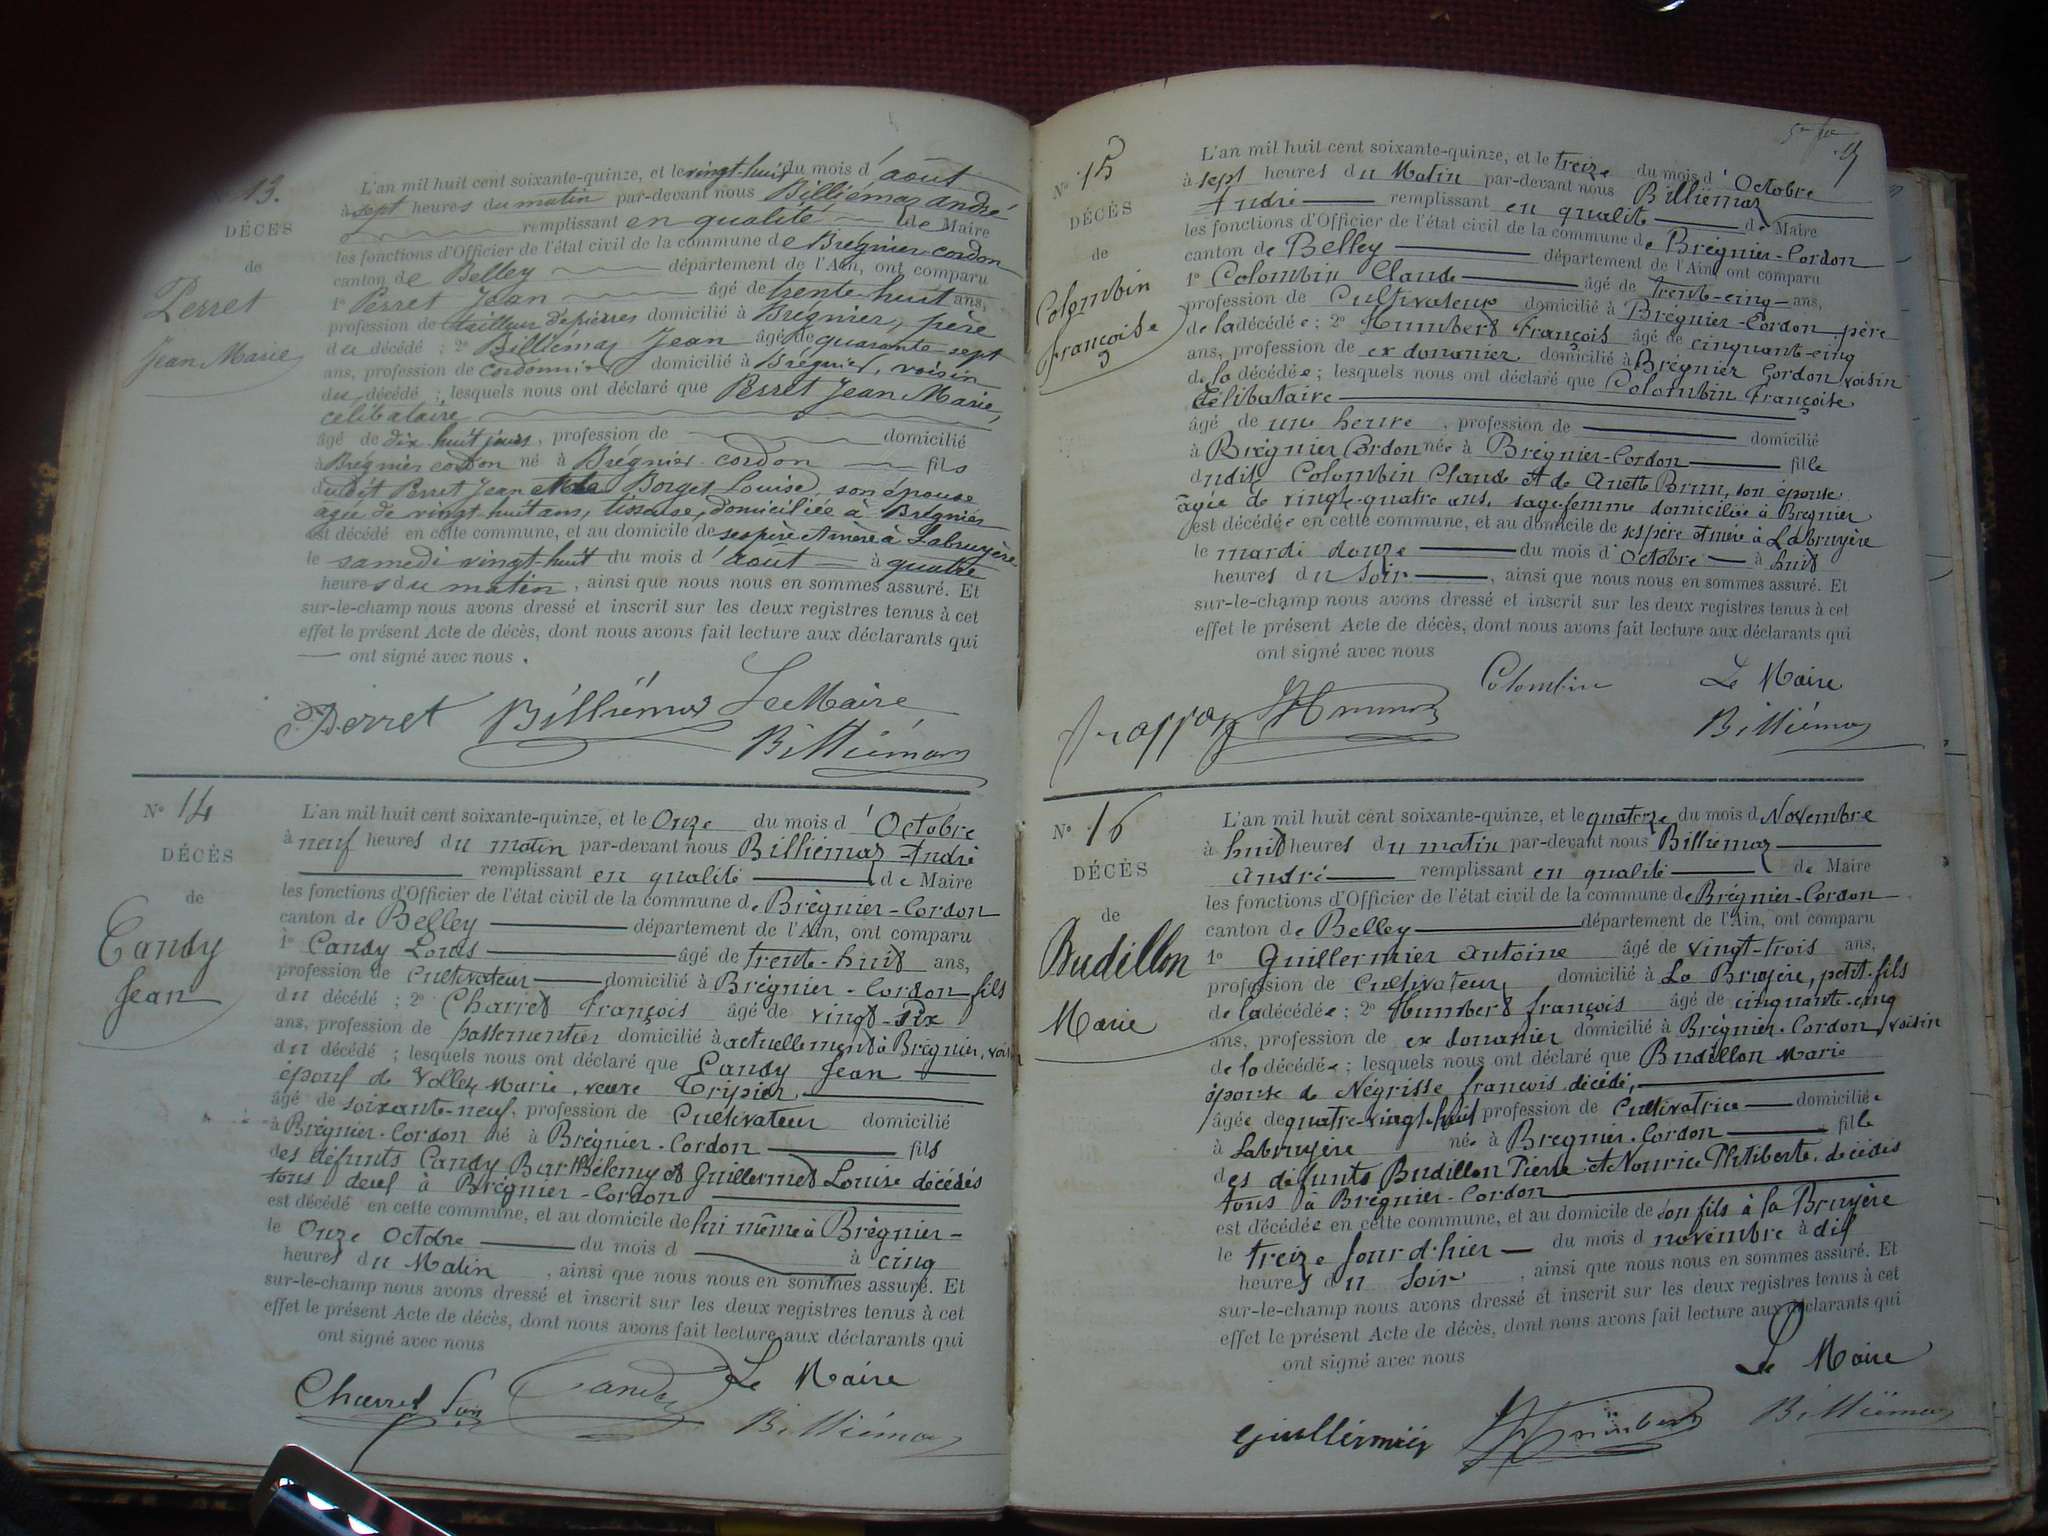 13.
DÉCÈS
de
Perret
Jean Marie
L'an mil huit cent soixante-quinze, et le vingt-huit du mois d'août
à sept heures du matin par-devant nous Billiémaz andré
remplissant en qualité de Maire
les fonctions d'Officier de l'état civil de la commune de Brégnier-cordon
canton de Belley département de l'Ain, ont comparu
1º Perret Jean âgé de trente-huit ans,
profession de tailleur de pierres domicilié à Brégnier, père
du décédé ; 2º Billiémaz Jean âgé de quarante-sept
ans, profession de cordonnier domicilié à Brégnier, voisin
du décédé ; lesquels nous ont déclaré que Perret Jean Marie,
célibataire
âgé de dix huit jours, profession de domicilié
à Brégnier cordon né à Brégnier-cordon fils
dudit Perret Jean et de Borget Louise, son épouse
agée de vingt huit ans, tisseuse, domiciliée à Brégnier
est décédé en cette commune, et au domicile de ses père et mère à Labruyère
le samedi vingt-huit du mois d'août à quatre
heures du matin, ainsi que nous nous en sommes assuré. Et
sur-le-champ nous avons dressé et inscrit sur les deux registres tenus à cet
effet le présent Acte de décès, dont nous avons fait lecture aux déclarants qui
ont signé avec nous.
Perret Billiémaz Le Maire
Billiémaz
Nº 14
DÉCÈS
de
Candy
Jean
L'an mil huit cent soixante-quinze, et le Onze du mois d'Octobre
à neuf heures du matin par-devant nous Billiemaz André
remplissant en qualité de Maire
les fonctions d'Officier de l'état civil de la commune de Brégnier-Cordon
canton de Belley département de l'Ain, ont comparu
1º Candy Louis âgé de trente-huit ans,
profession de Cultivateur domicilié à Brégnier-Cordon fils
du décédé ; 2º Charret François âgé de vingt-six
ans, profession de passementier domicilié à actuellement à Brégnier, voisin
du décédé ; lesquels nous ont déclaré que Candy Jean
époux de Vollet Marie, veuve Tripier,
âgé de soixante-neuf, profession de Cultivateur domicilié
à Brégnier-Cordon né à Brégnier-Cordon fils
des défunts Candy Barthélemy et Guillermet Louise décédés
tous deux à Brégnier-Cordon
est décédé en cette commune, et au domicile de lui même à Brégnier-
le Onze Octobre du mois d à cinq
heures du Matin, ainsi que nous nous en sommes assuré. Et
sur-le-champ nous avons dressé et inscrit sur les deux registres tenus à cet
effet le présent Acte de décès, dont nous avons fait lecture aux déclarants qui
ont signé avec nous
Charret Candy Le Maire
Billiémaz
Nº 15
DÉCÈS
de
Colombin
Françoise
L'an mil huit cent soixante-quinze, et le treize du mois d'Octobre
à sept heures du Matin par-devant nous Billiemaz
André remplissant en qualité de Maire
les fonctions d'Officier de l'état civil de la commune de Brégnier-Cordon
canton de Belley département de l'Ain, ont comparu
1º Colombin Claude âgé de trente-cinq ans,
profession de Cultivateur domicilié à Brégnier-Cordon père
de la décédée ; 2º Humbert François âgé de cinquante-cinq
ans, profession de ex douanier domicilié à Brégnier Cordon voisin
de la décédée ; lesquels nous ont déclaré que Colombin Françoise
célibataire
âgé de une heure, profession de domicilié
à Brégnier Cordon née à Brégnier-Cordon fille
dudit Colombin Claude et de Anette Brun, son épouse
âgée de vingt-quatre ans, sage-femme domiciliée à Brégnier
est décédée en cette commune, et au domicile de ses père et mère à Labruyère
le mardi douze du mois d'Octobre à huit
heures du soir, ainsi que nous nous en sommes assuré. Et
sur-le-champ nous avons dressé et inscrit sur les deux registres tenus à cet
effet le présent Acte de décès, dont nous avons fait lecture aux déclarants qui
ont signé avec nous
Colombin Le Maire
Billiémaz
Nº 16
DÉCÈS
de
Budillon
Marie
L'an mil huit cent soixante-quinze, et le quatorze du mois d Novembre
à huit heures du matin par-devant nous Billiémaz
André remplissant en qualité de Maire
les fonctions d'Officier de l'état civil de la commune de Brégnier-Cordon
canton de Belley département de l'Ain, ont comparu
1º Guillermier Antoine âgé de vingt-trois ans,
profession de Cultivateur domicilié à La Bruyère, petit-fils
de la décédée ; 2º Humbert françois âgé de cinquante-cinq
ans, profession de ex douanier domicilié à Brégnier-Cordon, voisin
de la décédée ; lesquels nous ont déclaré que Budillon Marie
épouse de Négrisse françois décédé,
âgée de quatre-vingt-huit profession de Cultivatrice domiciliée
à Labruyère née à Brégnier-Cordon fille
des défunts Budillon Pierre et Nourice Philiberte, décédés
tous à Brégnier-Cordon
est décédée en cette commune, et au domicile de son fils à la Bruyère
le treize Jour d'hier du mois d novembre à dix
heures du Soir, ainsi que nous nous en sommes assuré. Et
sur-le-champ nous avons dressé et inscrit sur les deux registres tenus à cet
effet le présent Acte de décès, dont nous avons fait lecture aux déclarants qui
ont signé avec nous
Le Maire
Guillermier Humbert Billiémaz